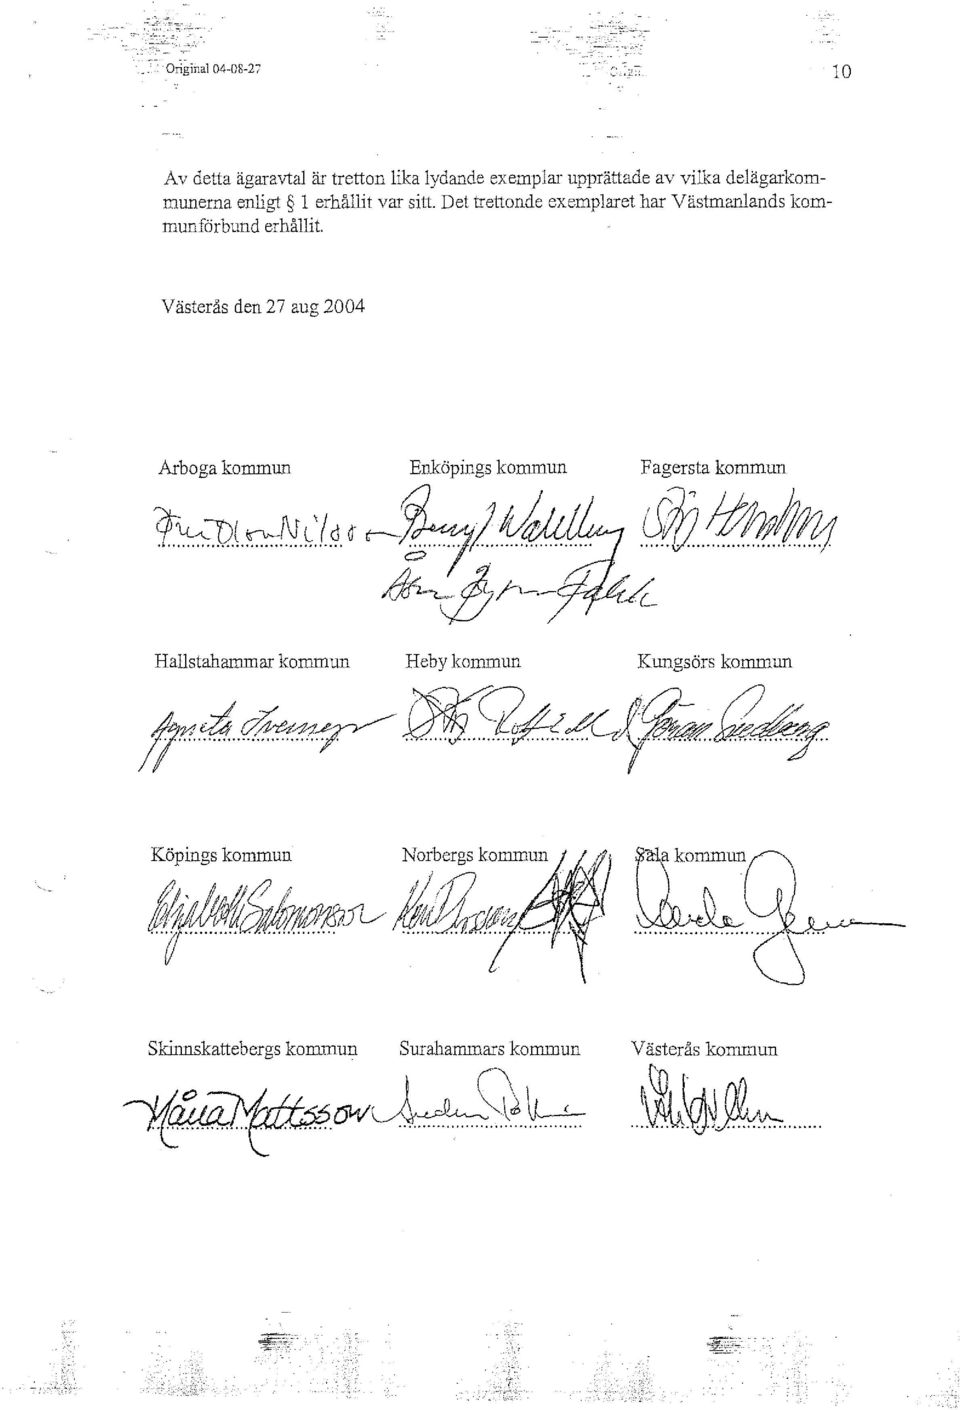 Original 04-08-27
10
Av detta ägaravtal är tretton lika lydande exemplar upprättade av vilka delägarkom-
munerna enligt § 1 erhållit var sitt. Det trettonde exemplaret har Västmanlands kom-
munförbund erhållit.
Västerås den 27 aug 2004
Arboga kommun Enköpings kommun Fagersta kommun
Hallstahammar kommun Heby kommun Kungsörs kommun
Agneta Göran
Köpings kommun Norbergs kommun Sala kommun
Elizabeth Salomonsson
Skinnskattebergs kommun Surahammars kommun Västerås kommun
Måna Mattsson